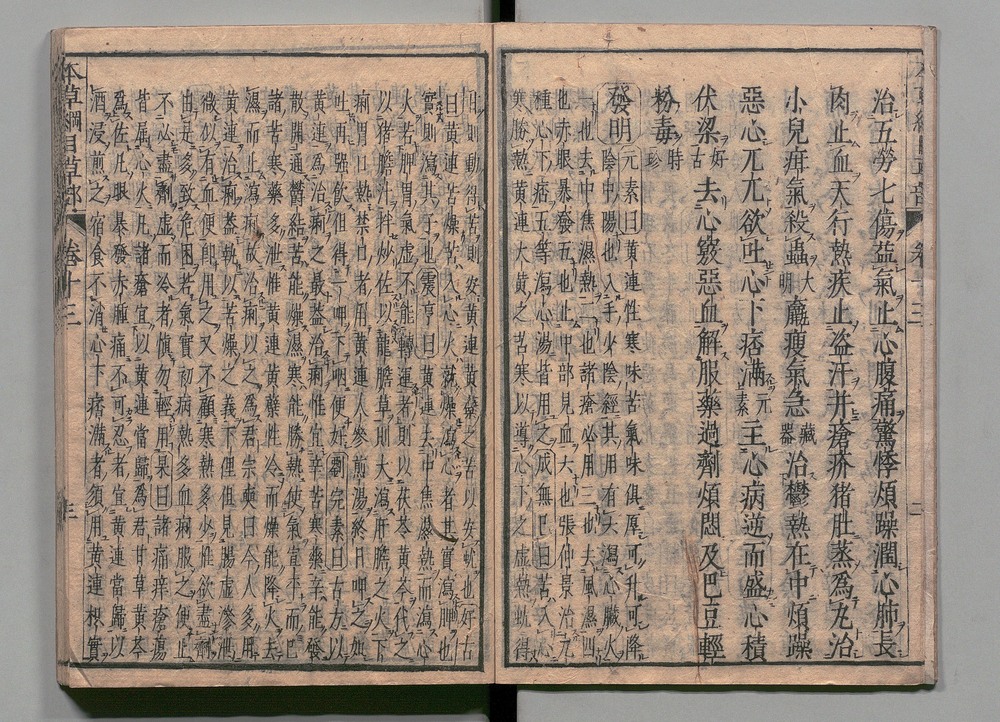 治五勞七傷益氣止心腹痛驚悸煩躁潤心肺長
肉止血天行熱疾止盜汗并瘡疥猪肚蒸爲丸治
小兒疳氣殺蟲大明羸瘦氣急藏器治鬱熱在中煩躁
惡心兀兀欲吐心下痞滿元素主心病逆而盛心積
伏梁好古去心竅惡血解服藥過劑煩悶及巴豆輕
粉毒時珍
發明元素曰黃連性寒味苦氣味俱厚可升可降
陰中陽也入手少陰經其用有六瀉心臟火
一也去中焦濕熱二也諸瘡必用三也去風濕四
也赤眼暴發五也止中部見血六也張仲景治九
種心下痞五等瀉心湯皆用之成無己曰苦入心
寒勝熱黃連大黃之苦寒以導心下之虛熱蚘得
甘則動得苦則安黃連黃蘗之苦以安蚘也好古
曰黃連苦燥苦入心火就燥瀉心者其實瀉脾也
實則瀉其子也震亨曰黃連去中焦濕熱而瀉心
火若脾胃氣虛不能轉運者則以茯苓黃芩代之
以猪膽汁拌炒佐以龍膽草則大瀉肝膽之火下
痢胃口熱禁口者用黃連人參煎湯終日呷之如
吐再強飲但得一呷下咽便好劉完素曰古方以
黃連爲治痢之最蓋治痢惟宜辛苦寒藥辛能發
散開通鬱結苦能燥濕寒能勝熱使氣宣平而已
諸苦寒藥多泄惟黃連黃蘗性冷而燥能降火去
濕而止瀉痢故治痢以之爲君宗奭曰今人多用
黃連治痢蓋執以苦燥之義下俚但見腸虛滲泄
微似有血便卽用之又不顧寒熱多少惟欲盡劑
由是多致危困若氣實初病熱多血痢服之便止
不必盡劑虛而冷者愼勿輕用杲曰諸痛痒瘡瘍
皆屬心火凡諸瘡宜以黃連當歸爲君甘草黃芩
爲佐凡眼暴發赤腫痛不可忍者宜黃連當歸以
酒浸煎之宿食不消心下痞滿者須用黃連枳實
本草綱目草部 卷十三